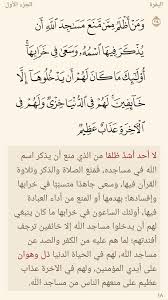 البقرة
الجزء الأول
وَمَنْ أَظْلَمُ مِمَّن مَّنَعَ مَسَٰجِدَ ٱللَّهِ أَن
يُذْكَرَ فِيهَا ٱسْمُهُۥ وَسَعَىٰ فِي خَرَابِهَآ
أُو۟لَٰٓئِكَ مَا كَانَ لَهُمْ أَن يَدْخُلُوهَآ إِلَّا
خَآئِفِينَ لَهُمْ فِي ٱلدُّنْيَا خِزْيٌ وَلَهُمْ فِي
ٱلْأٓخِرَةِ عَذَابٌ عَظِيمٌ
لا أحد أشدُّ ظلمًا من الذي منع أن يذكر اسم
الله في مساجده، فمنع الصلاة والذكر وتلاوة
القرآن فيها، وسعى جاهدًا متسببًا في خرابها
وإفسادها؛ بهدمها أو منع أداء العبادة
فيها، أولئك الساعون في خرابها ما كان ينبغي
لهم أن يدخلوا مساجد الله إلا خائفين ترجف
أفئدتهم؛ لما هم عليه من الكفر والصد عن
مساجد الله، لهم في الحياة الدنيا ذل وهوان
على أيدي المؤمنين، ولهم في الآخرة عذاب
١٨